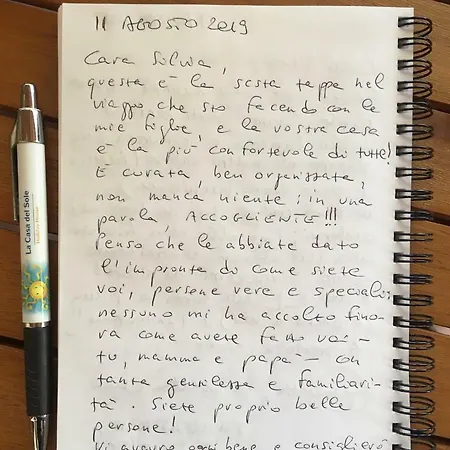 11 AGOSTO 2019
Cara Silvia,
questa è la sesta tappa nel
viaggio che sto facendo con le
mie figlie, e la vostra casa
è la più confortevole di tutte!
È curata, ben organizzata,
non manca niente: in una
parola, ACCOGLIENTE!!!
Penso che le abbiate dato
l'impronta di come siete
voi, persone vere e speciali;
nessuno mi ha accolto fino-
ra come avete fatto voi -
tu, mamma e papà - con
tanta gentilezza e familiari-
tà. Siete proprio belle
persone!
Vi auguro ogni bene e consiglierò
La Casa del Sole